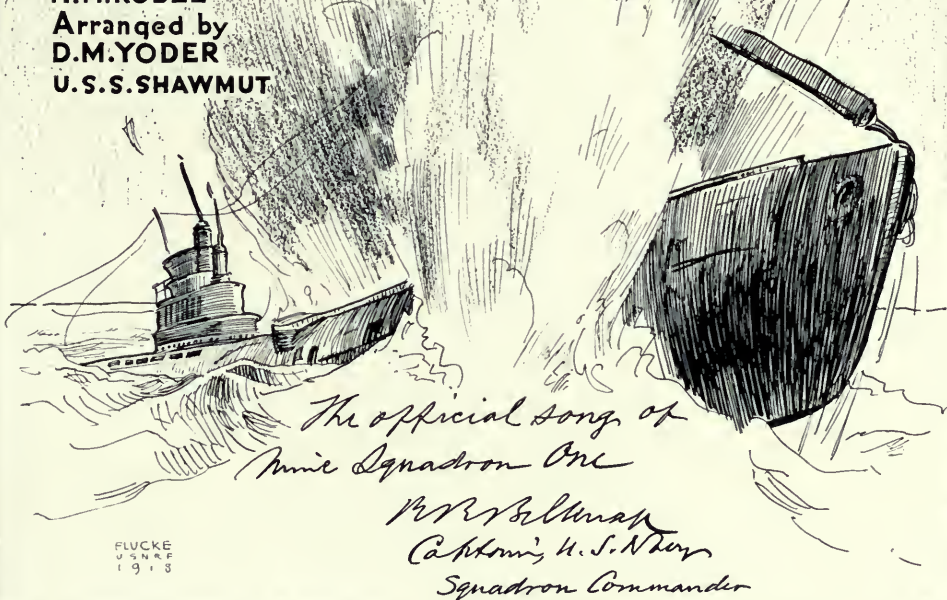 Arranged by
D.M.YODER
U.S.S.SHAWMUT
The official song of
Mine Squadron One
R R Belknap
Captain, U.S. Navy
Squadron Commander
FLUCKE
USNRF
1918